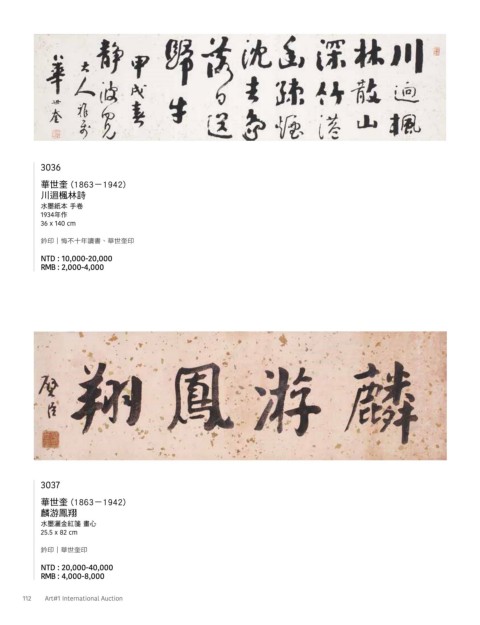 川迴楓
林散山
深竹港
幽疎煙
沈去鳥
落日送
歸牛
甲戌春
靜波
大人雅
華世奎
3036
華世奎 (1863－1942)
川迴楓林詩
水墨紙本 手卷
1934年作
36 x 140 cm
鈐印｜悔不十年讀書、華世奎印
NTD : 10,000-20,000
RMB : 2,000-4,000
麟游鳳翔
璧臣
3037
華世奎 (1863－1942)
麟游鳳翔
水墨灑金紅箋 畫心
25.5 x 82 cm
鈐印｜華世奎印
NTD : 20,000-40,000
RMB : 4,000-8,000
112 Art#1 International Auction